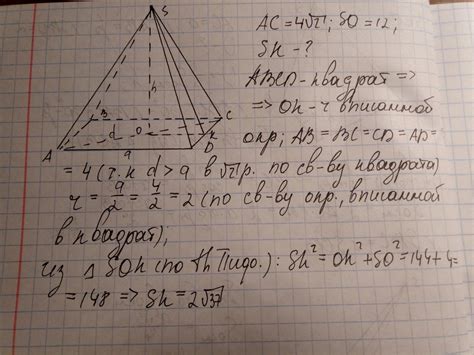 S
AC=4√2; SO=12;
SK-?
h
ABCD-квадрат =>
B
C
=> OK-r вписанной
d
O
K
A
D
a
окр; AB=BC=CD=AD=
=4 (т.к d>a в √2 р. по св-ву квадрата)
r=a/2=4/2=2 (по св-ву окр., вписанной
в квадрат);
из △ SOK (по th Пифо.): SK²=OK²+SO²=144+4=
=148 => SK=2√37